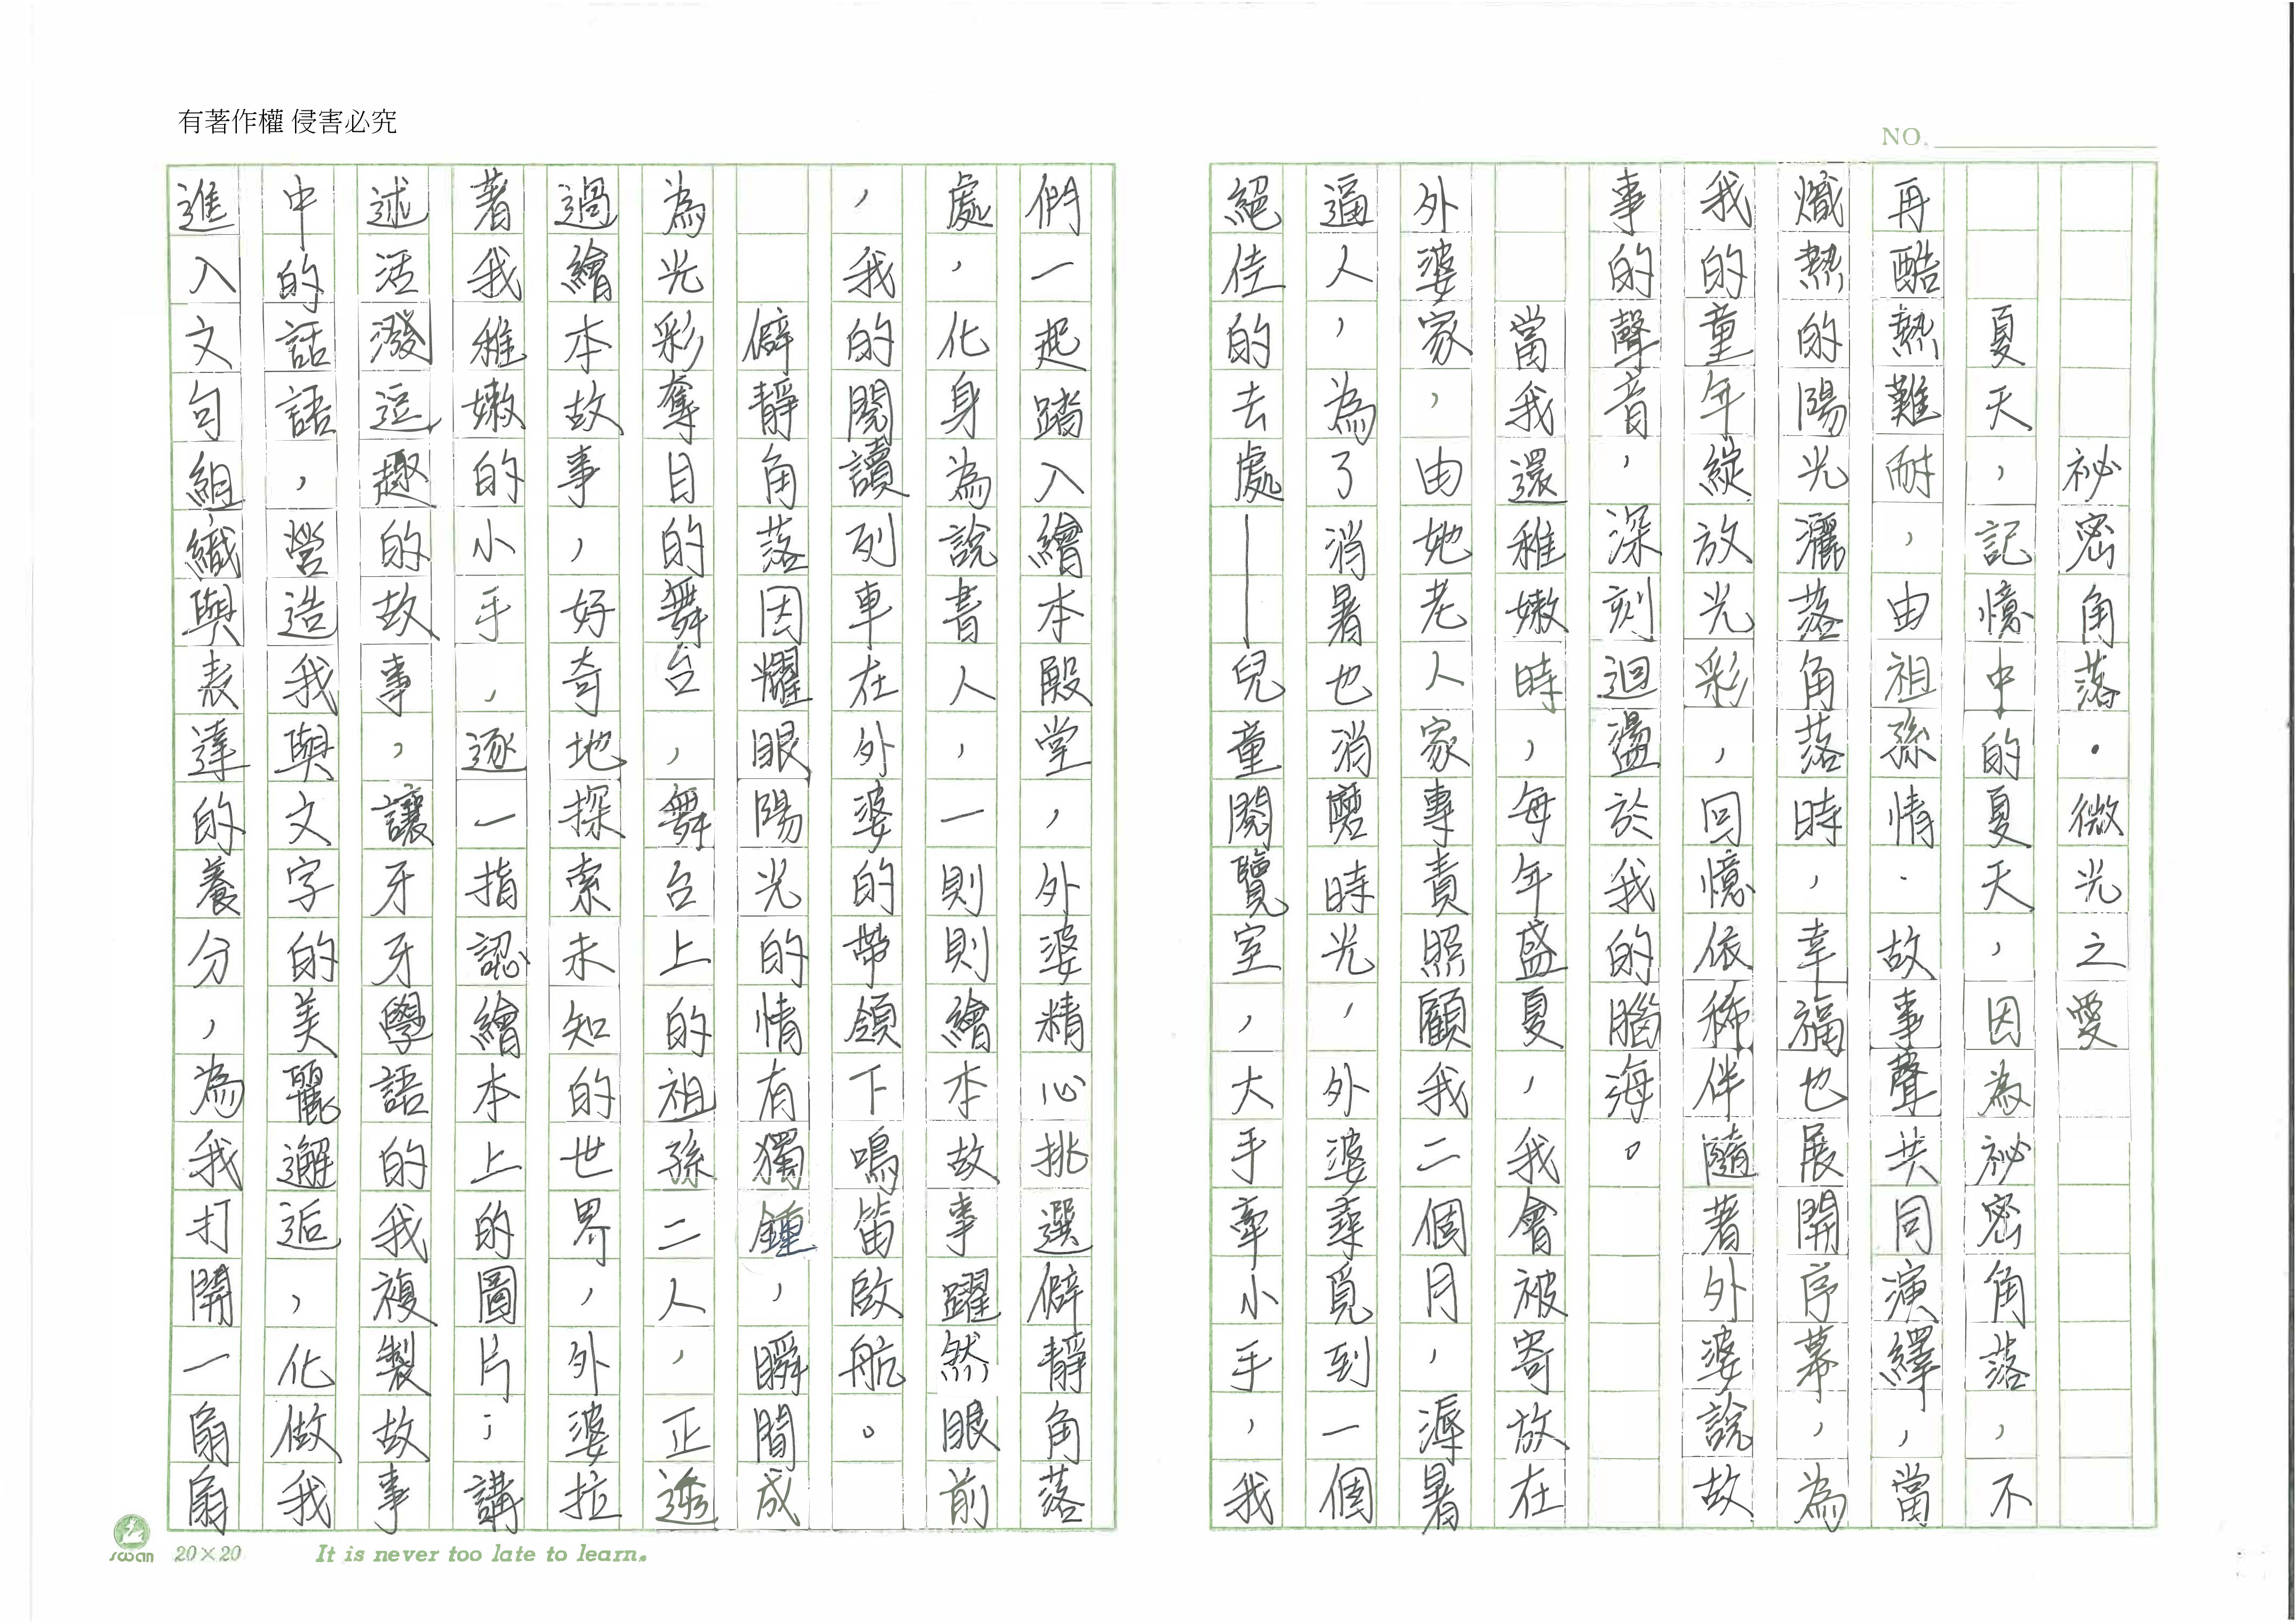 有著作權 侵害必究
NO.
祕密角落·微光之愛
夏天，記憶中的夏天，因為祕密角落，不
再酷熱難耐，由祖孫情·故事聲共同演繹，當
熾熱的陽光灑落角落時，幸福也展開序幕，為
我的童年綻放光彩，回憶依稀伴隨著外婆說故
事的聲音，深刻迴盪於我的腦海。
當我還稚嫩時，每年盛夏，我會被寄放在
外婆家，由她老人家專責照顧我二個月，溽暑
逼人，為了消暑也消磨時光，外婆尋覓到一個
絕佳的去處——兒童閱覽室，大手牽小手，我
們一起踏入繪本殿堂，外婆精心挑選僻靜角落
處，化身為說書人，一則則繪本故事躍然眼前
，我的閱讀列車在外婆的帶領下鳴笛啟航。
僻靜角落因耀眼陽光的情有獨鍾，瞬間成
為光彩奪目的舞台，舞台上的祖孫二人，正透
過繪本故事，好奇地探索未知的世界，外婆拉
著我稚嫩的小手，逐一指認繪本上的圖片；講
述活潑逗趣的故事，讓牙牙學語的我複製故事
中的話語，營造我與文字的美麗邂逅，化做我
進入文句組織與表達的養分，為我打開一扇扇
swan 20×20 It is never too late to learn.